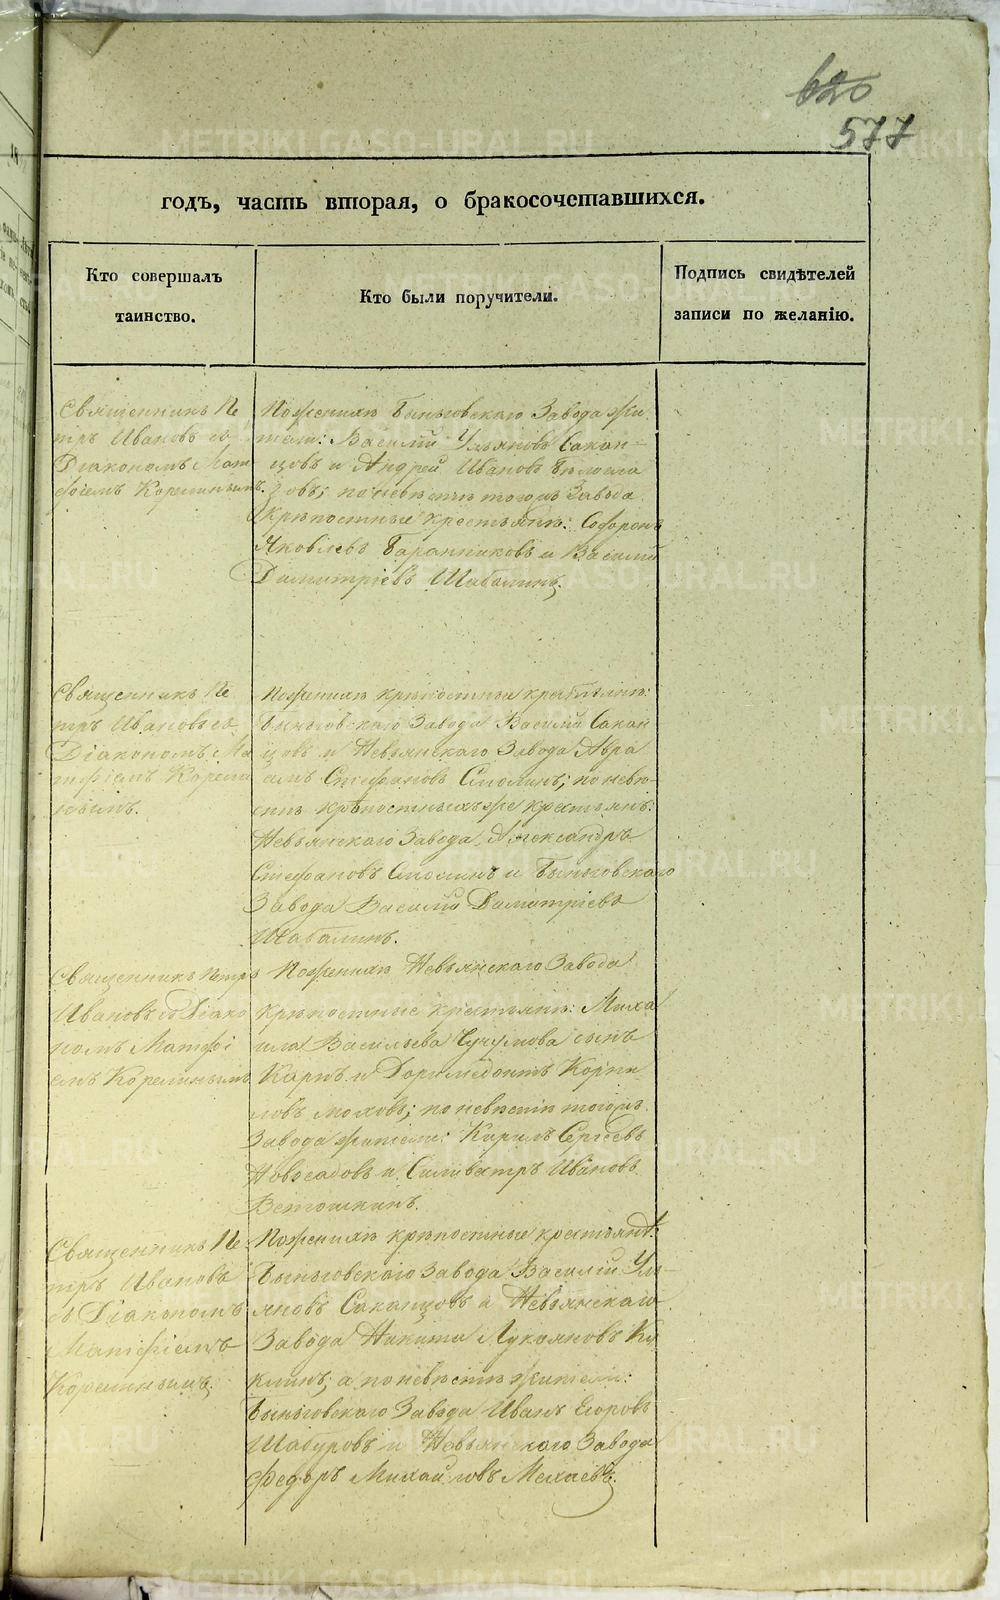 620
577
годъ, часть вторая, о бракосочетавшихся.
Кто совершалъ
таинство.
Кто были поручители.
Подпись свидѣтелей
записи по желанію.
Священникъ Пе
тръ Ивановъ съ
Діакономъ Мат
фіемъ Корелинымъ.
По женихѣ Быньговскаго Завода жи
тели: Василій Ульяновъ Сакан-
цовъ и Андрей Ивановъ Бѣлогла
зовъ; по невѣстѣ тогожъ Завода
крѣпостные крестьяне: Софронъ
Яковлевъ Баранниковъ и Василій
Димитріевъ Шабалинъ.
Священникъ Пе
тръ Ивановъ съ
Діакономъ Ма
тфіемъ Корели
нымъ.
По женихѣ крѣпостные крестьяне:
Быньговскаго Завода Василій Сакан
цовъ и Невьянскаго Завода Авра
амъ Стефановъ Смолинъ; по невѣ-
стѣ крѣпостныхъ же крестьянъ:
Невьянскаго Завода Александръ
Стефановъ Смолинъ и Быньговскаго
Завода Василій Димитріевъ
Шабалинъ.
Священникъ Петръ
Ивановъ съ Діако
номъ Матфі
емъ Корелинымъ
По женихѣ Невьянскаго Завода
крѣпостные крестьяне: Миха
ила Васильева Чучумова сынъ
Карпъ и Доримедонтъ Корни
ловъ Моховъ; по невѣстѣ тогожъ
Завода жители: Кирилъ Сергѣевъ
Новосадовъ и Силивестръ Ивановъ
Ветошкинъ.
Священникъ Пе
тръ Ивановъ
съ Діакономъ
Матфіемъ
Корелинымъ.
По женихѣ крѣпостные крестьяне:
Быньговскаго Завода Василій Уль-
яновъ Саканцовъ и Невьянскаго
Завода Никита Лукояновъ
а по невѣстѣ жители:
Быньговскаго Завода Иванъ Егоровъ
Шабуровъ и Невьянскаго Завода
Федоръ Михайловъ Мехаевъ.
METRIKI.GASO-URAL.RU